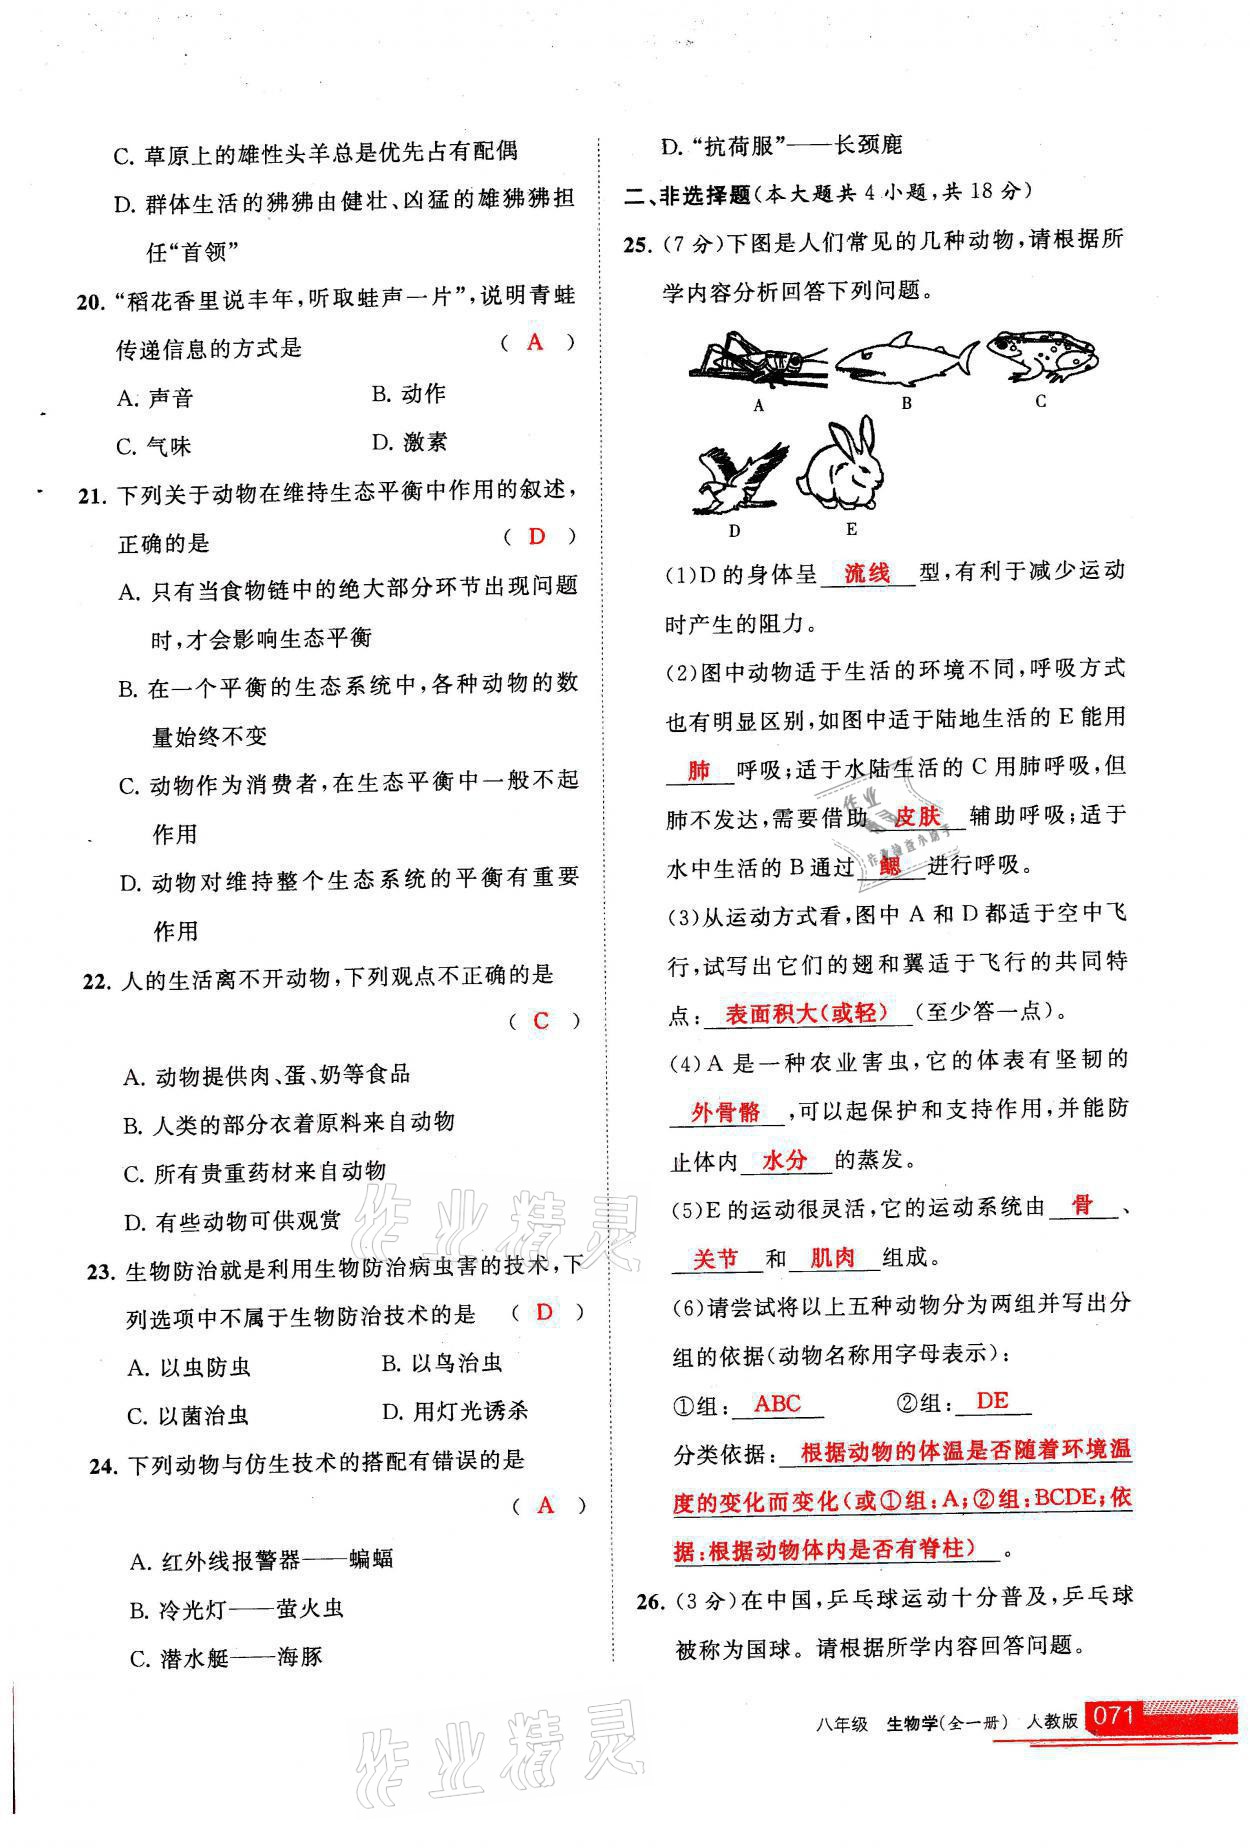 C. 草原上的雄性头羊总是优先占有配偶
D. 群体生活的狒狒由健壮、凶猛的雄狒狒担
任“首领”
20. “稻花香里说丰年,听取蛙声一片”,说明青蛙
传递信息的方式是 ( A )
A. 声音 B. 动作
C. 气味 D. 激素
21. 下列关于动物在维持生态平衡中作用的叙述,
正确的是 ( D )
A. 只有当食物链中的绝大部分环节出现问题
时,才会影响生态平衡
B. 在一个平衡的生态系统中,各种动物的数
量始终不变
C. 动物作为消费者,在生态平衡中一般不起
作用
D. 动物对维持整个生态系统的平衡有重要
作用
22. 人的生活离不开动物,下列观点不正确的是
( C )
A. 动物提供肉、蛋、奶等食品
B. 人类的部分衣着原料来自动物
C. 所有贵重药材来自动物
D. 有些动物可供观赏
23. 生物防治就是利用生物防治病虫害的技术,下
列选项中不属于生物防治技术的是 ( D )
A. 以虫防虫 B. 以鸟治虫
C. 以菌治虫 D. 用灯光诱杀
24. 下列动物与仿生技术的搭配有错误的是
( A )
A. 红外线报警器——蝙蝠
B. 冷光灯——萤火虫
C. 潜水艇——海豚
D. “抗荷服”——长颈鹿
二、非选择题(本大题共 4 小题,共 18 分)
25. (7 分)下图是人们常见的几种动物,请根据所
学内容分析回答下列问题。
A B C
D E
(1)D 的身体呈 流线 型,有利于减少运动
时产生的阻力。
(2)图中动物适于生活的环境不同,呼吸方式
也有明显区别,如图中适于陆地生活的 E 能用
肺 呼吸;适于水陆生活的 C 用肺呼吸,但
肺不发达,需要借助 皮肤 辅助呼吸;适于
水中生活的 B 通过 鳃 进行呼吸。
(3)从运动方式看,图中 A 和 D 都适于空中飞
行,试写出它们的翅和翼适于飞行的共同特
点: 表面积大(或轻) (至少答一点)。
(4)A 是一种农业害虫,它的体表有坚韧的
外骨骼 ,可以起保护和支持作用,并能防
止体内 水分 的蒸发。
(5)E 的运动很灵活,它的运动系统由 骨 、
关节 和 肌肉 组成。
(6)请尝试将以上五种动物分为两组并写出分
组的依据(动物名称用字母表示):
①组: ABC ②组: DE
分类依据: 根据动物的体温是否随着环境温
度的变化而变化(或①组:A;②组:BCDE;依
据:根据动物体内是否有脊柱) 。
26. (3 分)在中国,乒乓球运动十分普及,乒乓球
被称为国球。请根据所学内容回答问题。
八年级 生物学(全一册) 人教版 071
作业
作业检查小助手
作业精灵
作业精灵